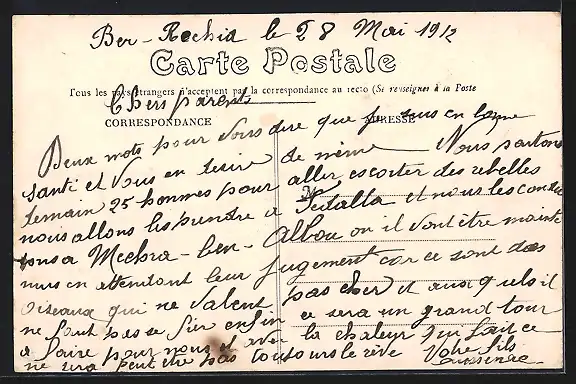 Ber-Rechid le 28 Mai 1912
Carte Postale
Tous les pays étrangers n'acceptent pas la correspondance au recto (Se renseigner à la Poste
Chers parents
CORRESPONDANCE
ADRESSE
Deux mots pour vous dire que je suis en bonne
santé et vous en desire de même Nous partons
demain 25 hommes pour aller escorter des rebelles
nous allons les prendre a et nous les condui
sons a Mechra-ben-Abbou ou il vont être mainte
nus en attendant leur jugement car ce sont des
oiseaux qui ne valent pas cher et aux quels il
ne faut pas se fier enfin ce sera un grand tour
a faire pour nous et avec la chaleur qu'il fait ce
ne sera peut être pas toujours le rêve Votre fils